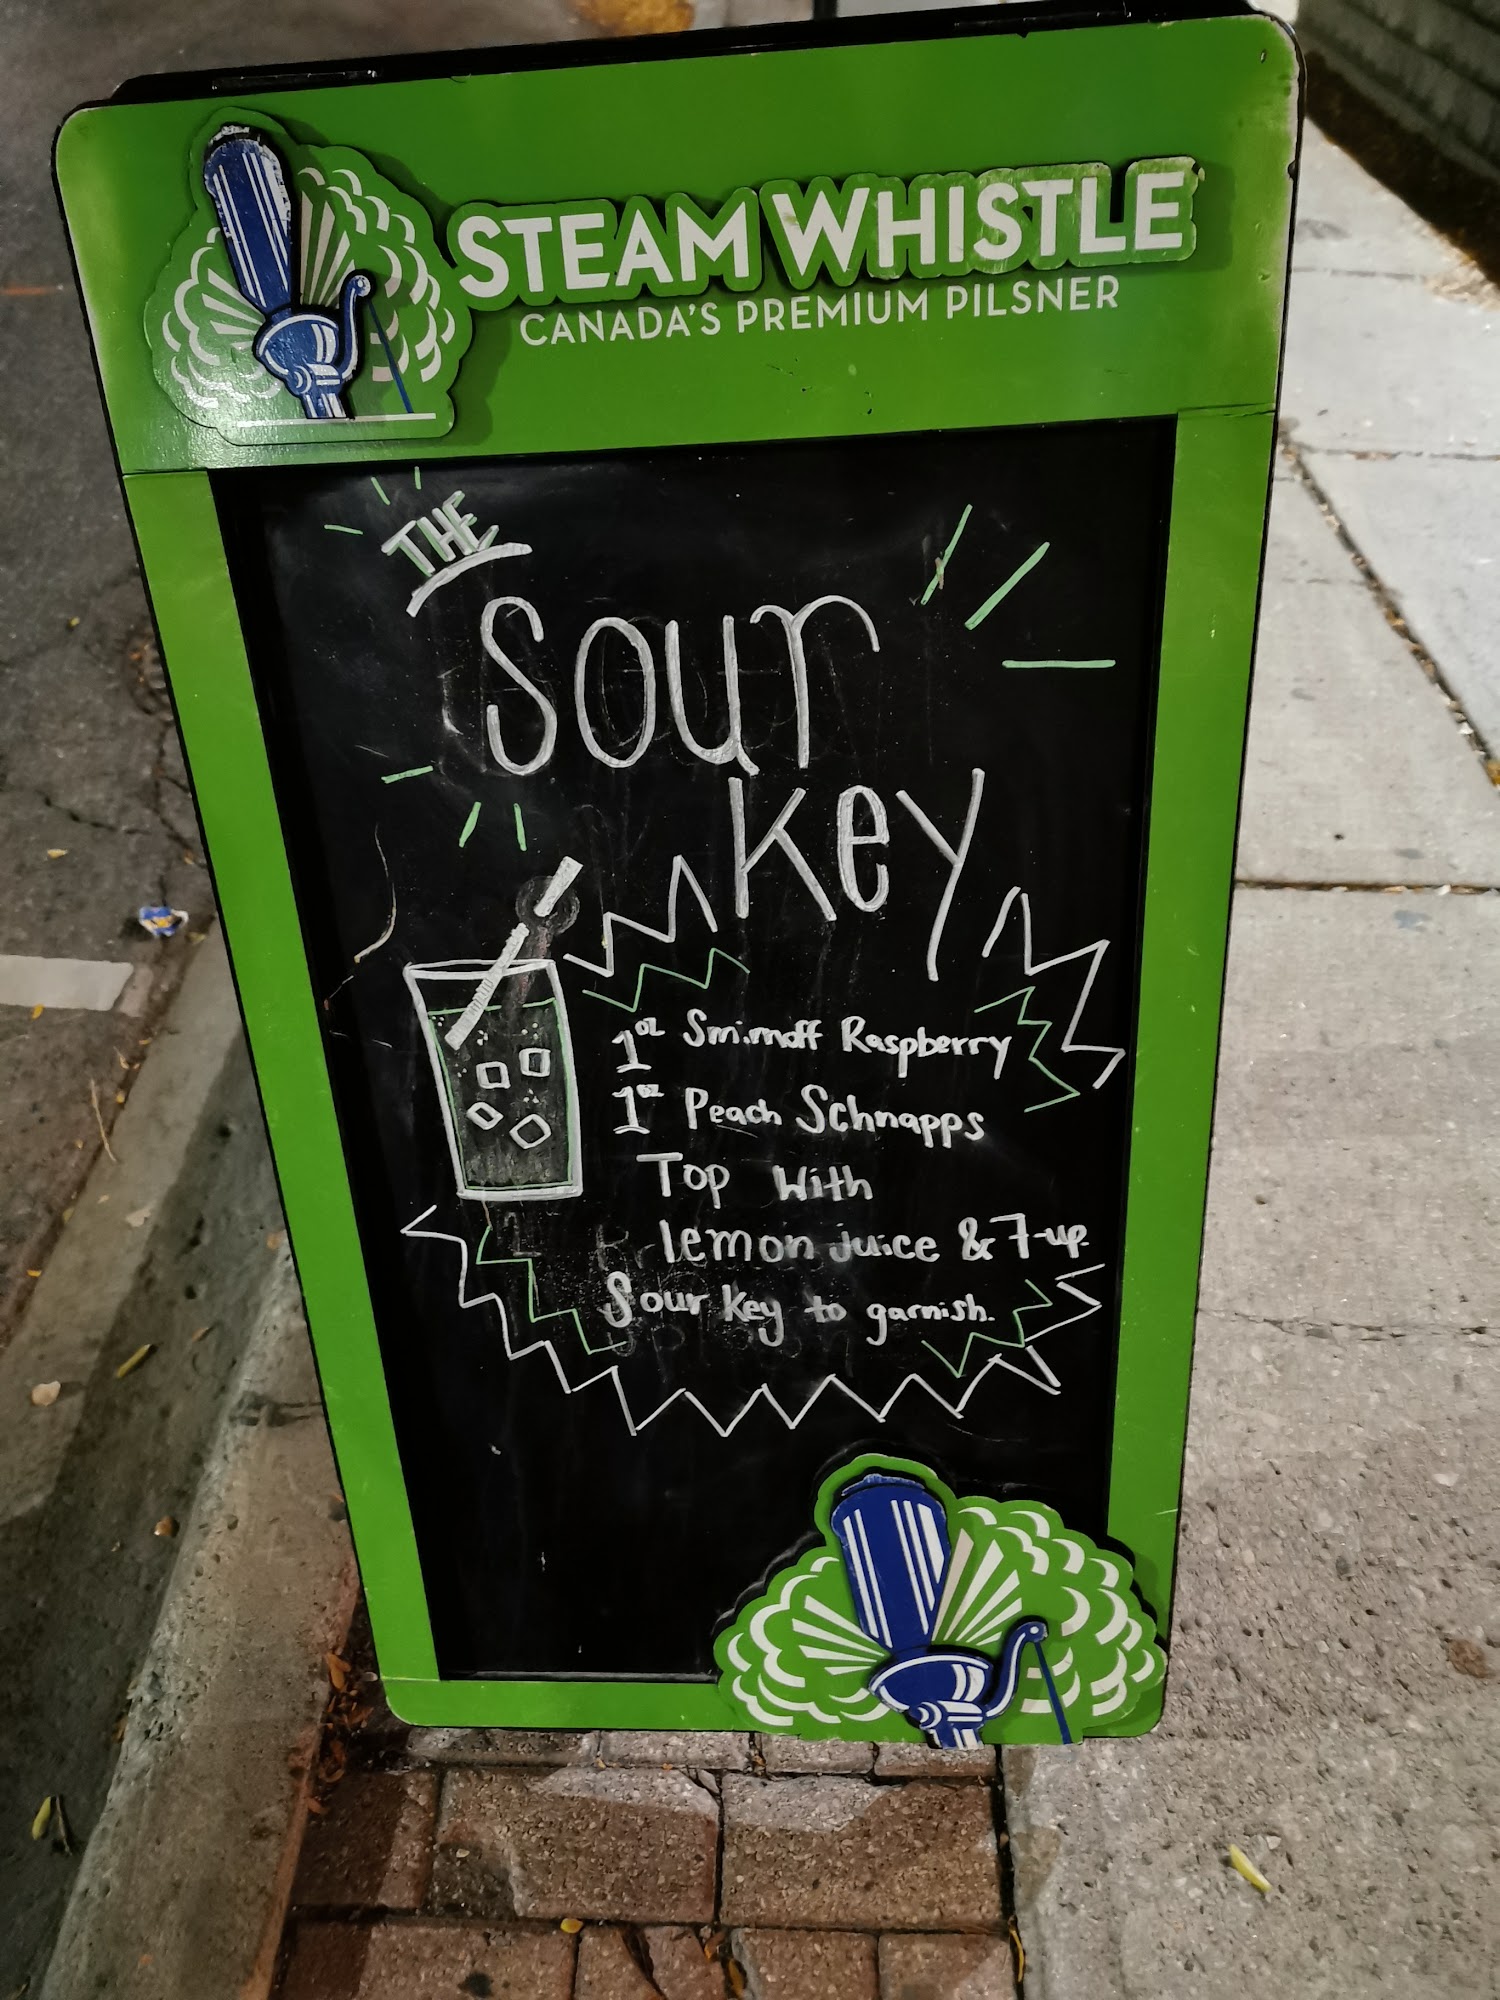 STEAM WHISTLE
CANADA'S PREMIUM PILSNER
THE
Sour
Key
1oz Smirnoff Raspberry
1oz Peach Schnapps
Top With
lemon juice & 7-up
Sour Key to garnish.